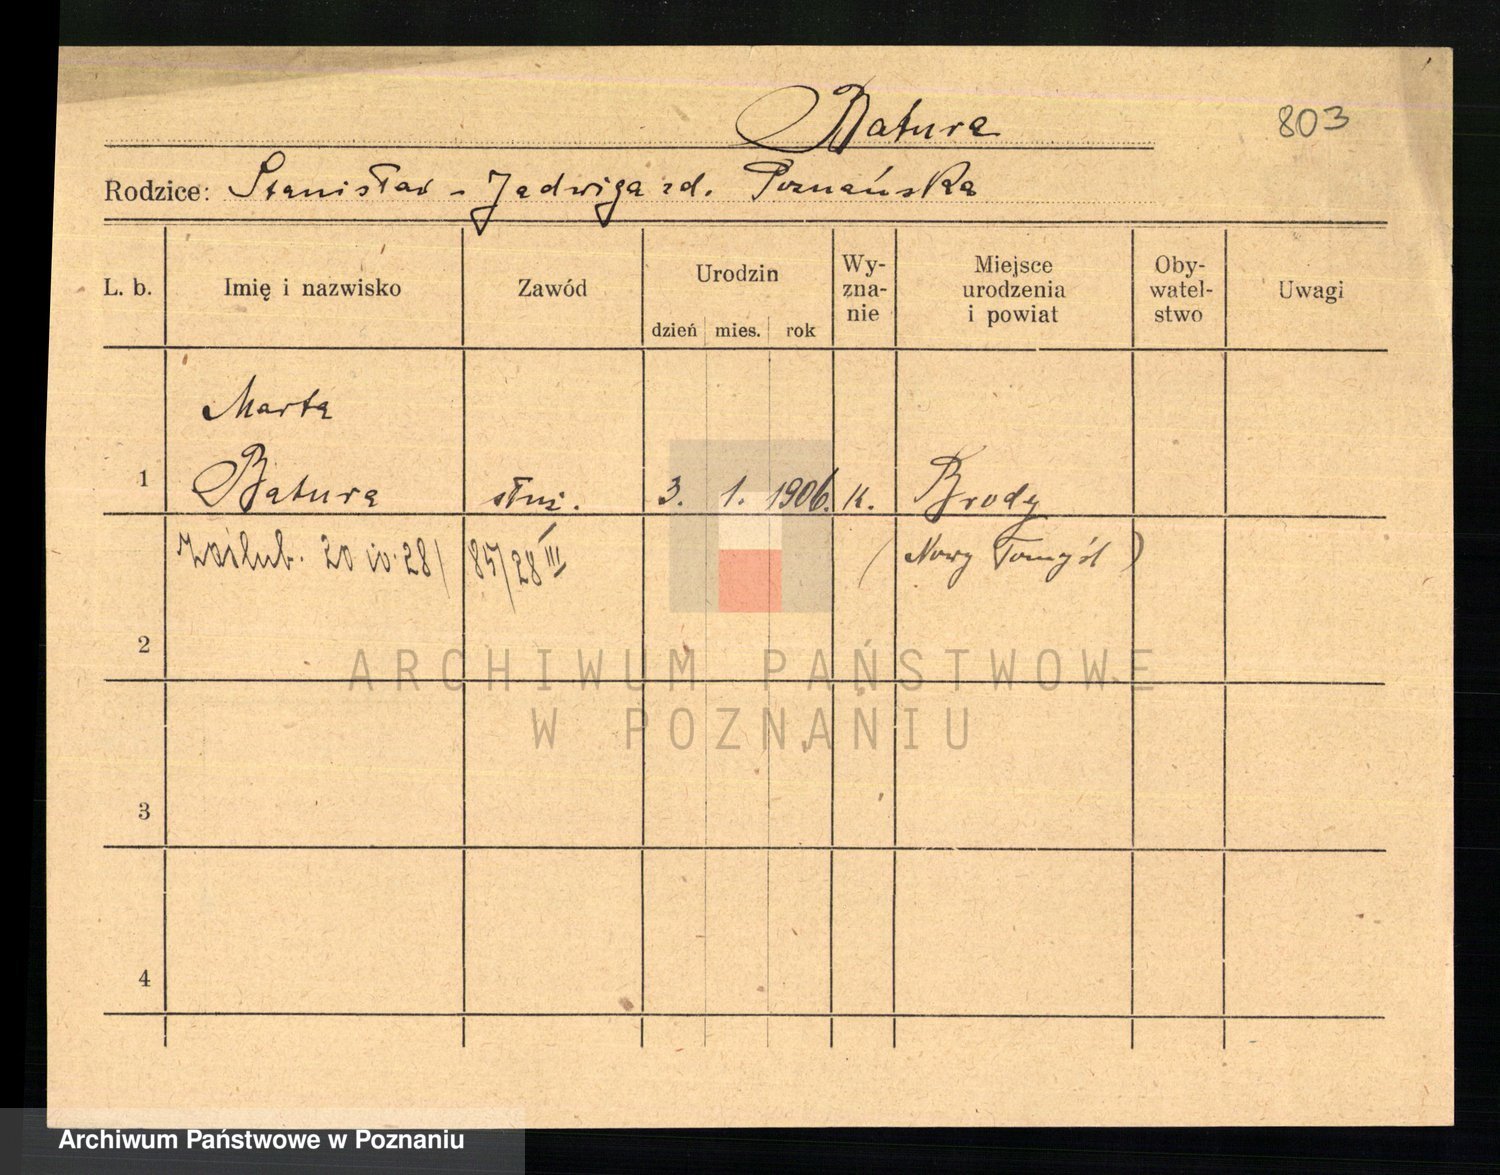 Batura
803
Rodzice: Stanisław - Jadwiga zd. Poznańska
L. b.
Imię i nazwisko
Zawód
Urodzin
dzień mies. rok
Wy-
zna-
nie
Miejsce
urodzenia
i powiat
Oby-
watel-
stwo
Uwagi
Marta
1 Batura służ. 3. 1. 1906. k. Brody
zaślub. 20 IV. 28 / 85/28 III (Nowy Tomyśl)
2
ARCHIWUM PAŃSTWOWE
W POZNANIU
3
4
Archiwum Państwowe w Poznaniu